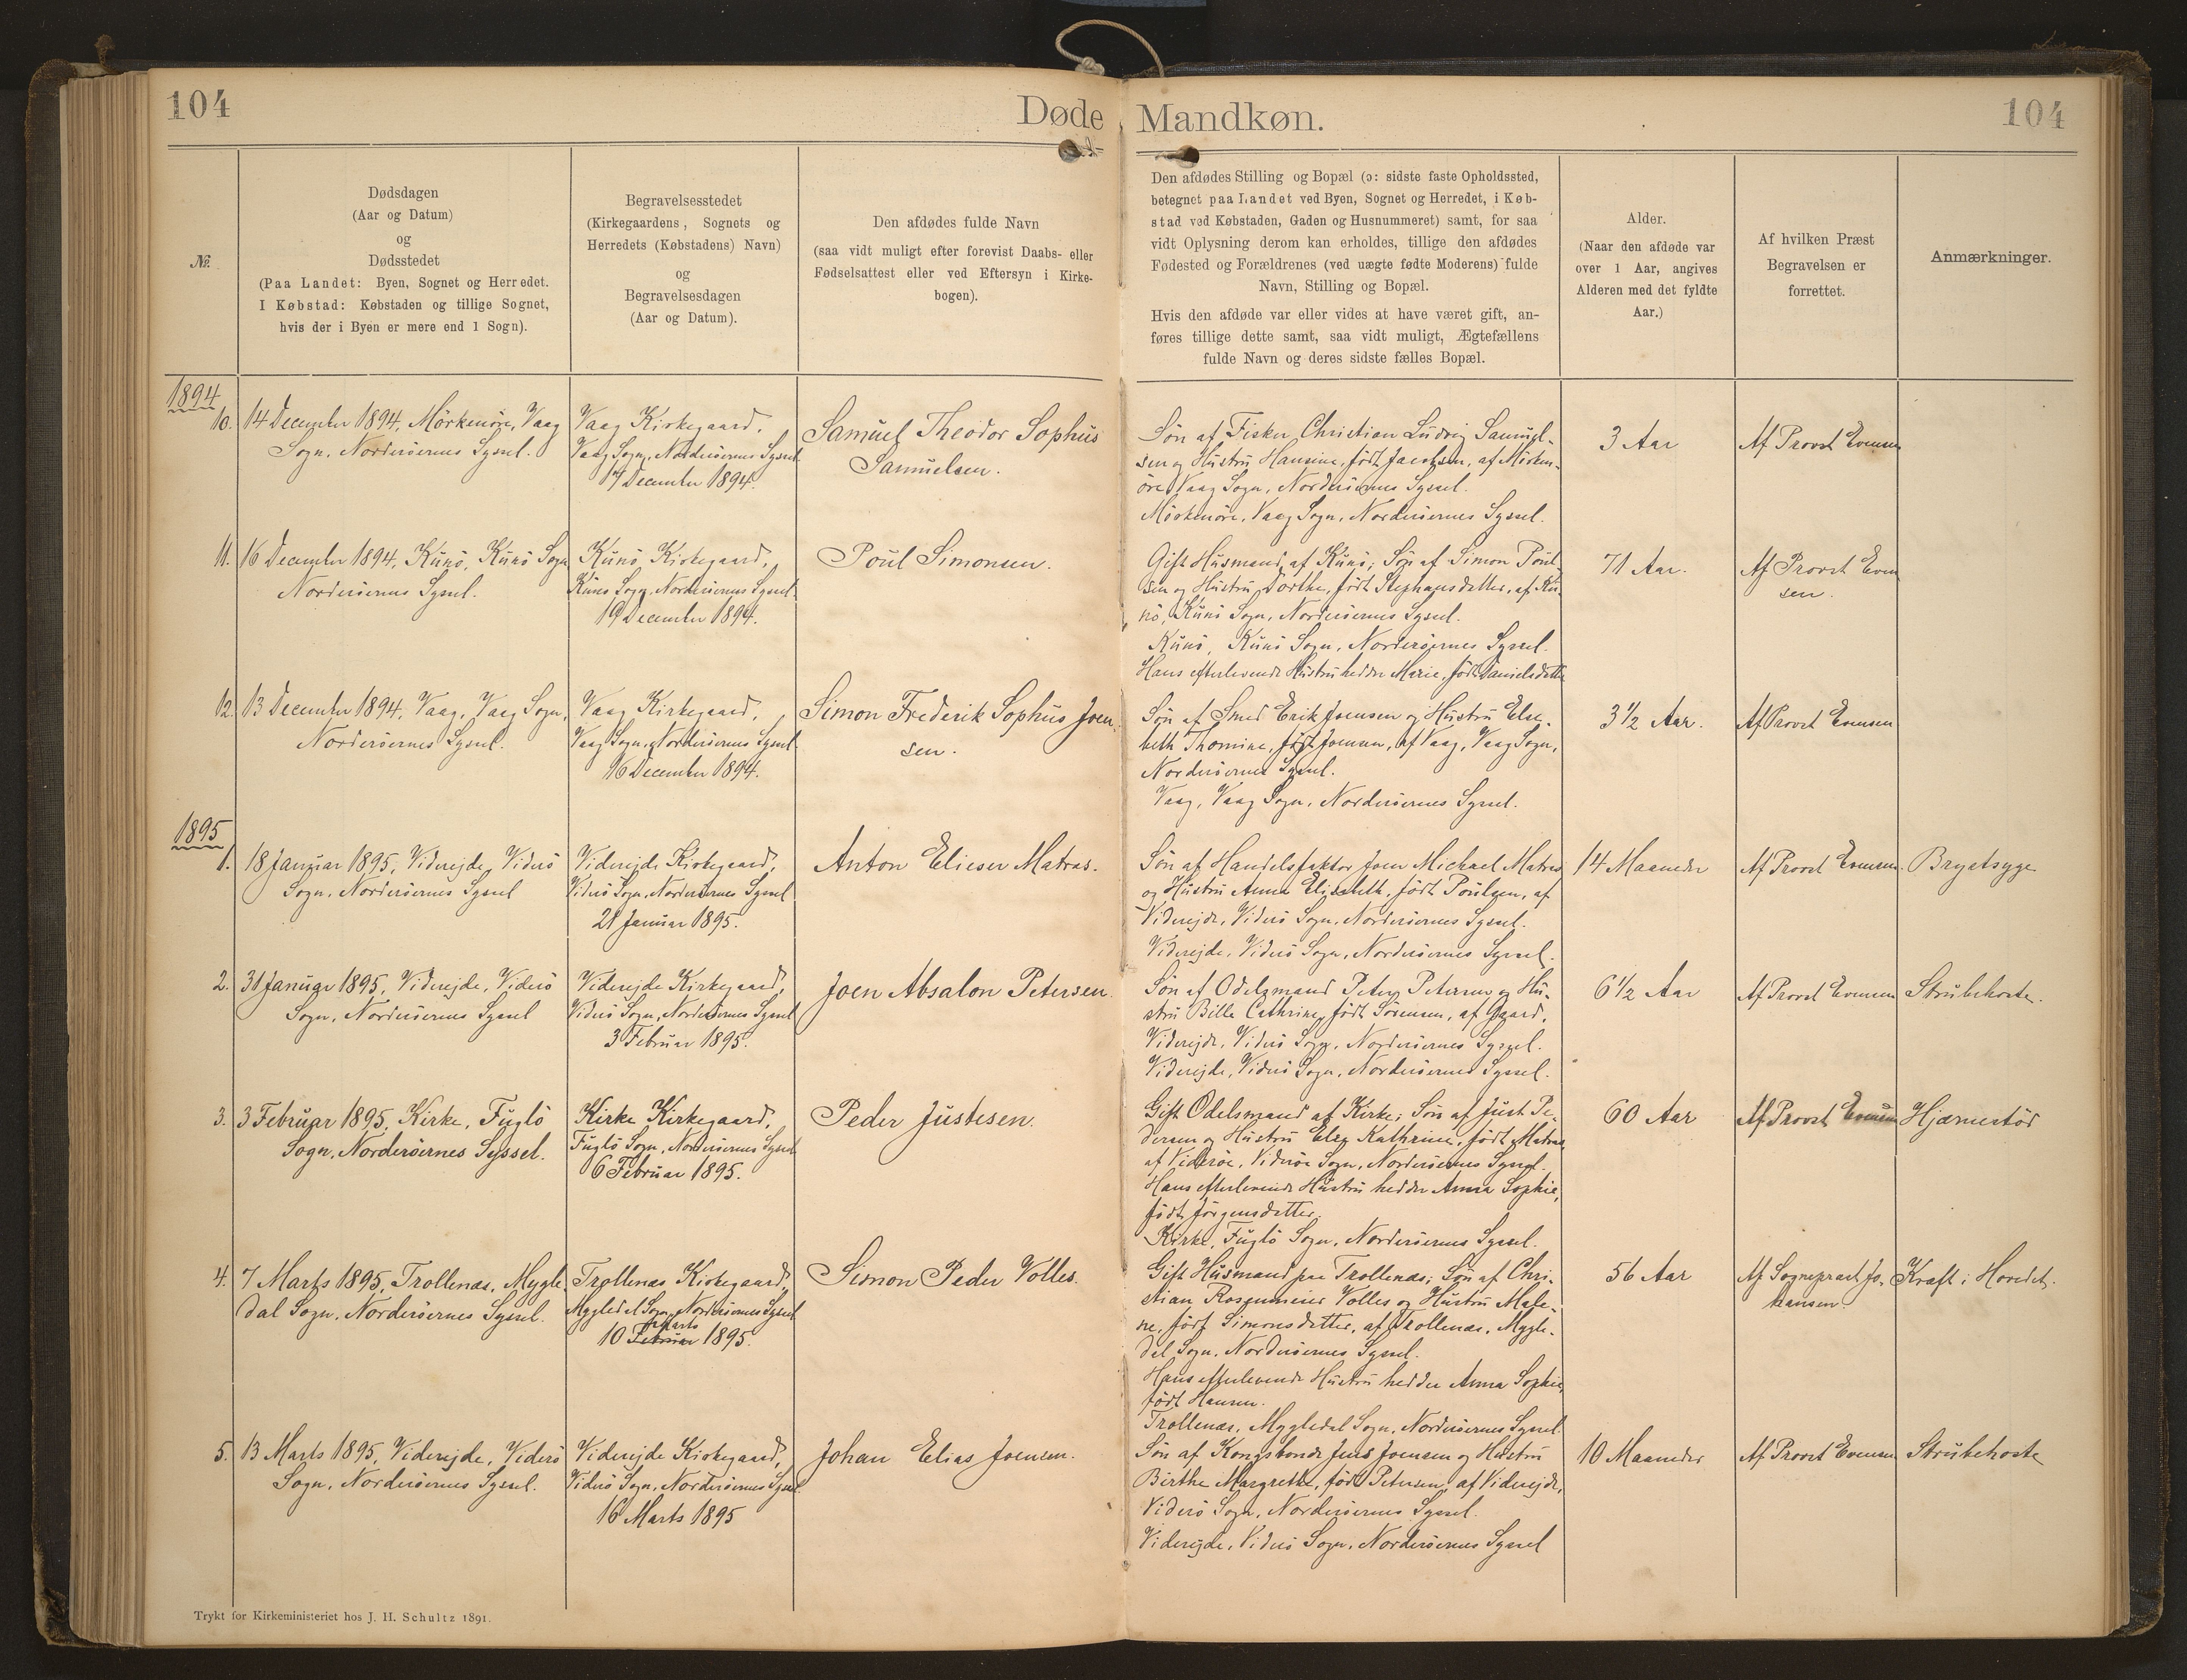 104
Døde Mandkøn.
104
№
Dødsdagen
(Aar og Datum)
og
Dødsstedet
(Paa Landet: Byen, Sognet og Herredet.
I Købstad: Købstaden og tillige Sognet,
hvis der i Byen er mere end 1 Sogn).
Begravelsesstedet
(Kirkegaardens, Sognets og
Herredets (Købstadens) Navn)
og
Begravelsesdagen
(Aar og Datum).
Den afdødes fulde Navn
(saa vidt muligt efter forevist Daabs- eller
Fødselsattest eller ved Eftersyn i Kirke-
bogen).
Den afdødes Stilling og Bopæl (ɔ: sidste faste Opholdssted,
betegnet paa Landet ved Byen, Sognet og Herredet, i Køb-
stad ved Købstaden, Gaden og Husnummeret) samt, for saa
vidt Oplysning derom kan erholdes, tillige den afdødes
Fødested og Forældrenes (ved uægte fødte Moderens) fulde
Navn, Stilling og Bopæl.
Hvis den afdøde var eller vides at have været gift, an-
føres tillige dette samt, saa vidt muligt, Ægtefællens
fulde Navn og deres sidste fælles Bopæl.
Alder.
(Naar den afdøde var
over 1 Aar, angives
Alderen med det fyldte
Aar.)
Af hvilken Præst
Begravelsen er
forrettet.
Anmærkninger.
1894
10.
14 December 1894, Mörkenöre, Vaag
Sogn, Norderöernes Syssel.
Vaag Kirkegaard,
Vaag Sogn, Norderöernes Syssel
17 December 1894.
Samuel Theodor Sophus
Samuelsen.
Søn af Fisker Christian Ludvig Samuel-
sen og Hustru Hansine, født Jacobsen, af Mörken-
öre, Vaag Sogn, Norderöernes Syssel.
Mörkenöre, Vaag Sogn, Norderöernes Syssel.
3 Aar
Af Provst Evensen
11.
16 December 1894, Kunö, Kunö Sogn
Norderöernes Syssel.
Kunö Kirkegaard,
Kunö Sogn, Norderöernes Syssel
19 December 1894.
Poul Simonsen.
Gift Husmand af Kunö; Søn af Simon Poul-
sen og Hustru Dorthe, født Stephansdatter, af Ku-
nö, Kunö Sogn, Norderöernes Syssel.
Kunö, Kunö Sogn, Norderöernes Syssel.
Hans efterlevende Hustru hedder Marie, født Danielsdatter
71 Aar.
Af Provst Even
sen.
12.
13 December 1894, Vaag, Vaag Sogn,
Norderöernes Syssel.
Vaag Kirkegaard,
Vaag Sogn, Norderöernes Syssel
16 December 1894.
Simon Frederik Sophus Joen-
sen.
Søn af Smed Erik Joensen og Hustru Else-
beth Thomine, født Joensen, af Vaag, Vaag Sogn,
Norderöernes Syssel.
Vaag, Vaag Sogn, Norderöernes Syssel.
3 1/2 Aar.
Af Provst Evensen
1895
1.
18 Januar 1895, Viderejde, Viderö
Sogn, Norderöernes Syssel
Viderejde Kirkegaard,
Viderö Sogn, Norderöernes Syssel
21 Januar 1895.
Anton Elieser Matras.
Søn af Handelsfaktor Joen Michael Matras
og Hustru Anna Elisabeth, født Poulsen, af
Viderejde, Viderö Sogn, Norderöernes Syssel.
Viderejde, Viderö Sogn, Norderöernes Syssel.
14 Maaneder
Af Provst Evensen
Brystsyge
2.
31 Januar 1895, Viderejde, Viderö
Sogn, Norderöernes Syssel
Viderejde Kirkegaard,
Viderö Sogn, Norderöernes Syssel
3 Februar 1895.
Joen Absalon Petersen.
Søn af Odelsmand Peter Petersen og Hu-
stru Bille Cathrine, født Sörensen, af Gaard,
Viderejde, Viderö Sogn, Norderöernes Syssel.
Viderejde, Viderö Sogn, Norderöernes Syssel.
6 1/2 Aar
Af Provst Evensen
Strubehoste.
3.
3 Februar 1895, Kirke, Fuglö
Sogn, Norderöernes Syssel.
Kirke Kirkegaard,
Fuglö Sogn, Norderöernes Syssel
6 Februar 1895.
Peder Justesen.
Gift Odelsmand af Kirke; Søn af Just Pe-
dersen og Hustru Else Kathrine, født Matras
af Videröe, Videröe Sogn, Norderöernes Syssel.
Hans efterlevende Hustru hedder Anna Sophie,
født Jörgensdatter.
Kirke, Fuglö Sogn, Norderöernes Syssel.
60 Aar
Af Provst Evensen
Hjærnestød
4.
7 Marts 1895, Trollenæs, Mygle-
dal Sogn, Norderöernes Syssel.
Trollenæs Kirkegaard,
Mygledal Sogn, Norderöernes Syssel
Marts
10 Februar 1895.
Simon Peder Volles.
Gift Husmand paa Trollenæs; Søn af Chri-
stian Rosenmeier Volles og Hustru Male-
ne, født Simonsdatter, af Trollenæs, Mygle-
dal Sogn, Norderöernes Syssel.
Hans efterlevende Hustru hedder Anna Sophie,
født Hansen.
Trollenæs, Mygledal Sogn, Norderöernes Syssel
56 Aar
Af Sognepræst Jo-
hansen.
Kræft i Hovedet.
5.
13 Marts 1895, Viderejde, Viderö
Sogn, Norderöernes Syssel.
Viderejde Kirkegaard,
Viderö Sogn, Norderöernes Syssel.
16 Marts 1895
Johan Elias Joensen.
Søn af Kongsbonde Jens Joensen og Hustru
Birthe Margrethe, født Petersen, af Viderejde,
Viderö Sogn, Norderöernes Syssel.
Viderejde, Viderö Sogn, Norderöernes Syssel
10 Maaneder
Af Provst Evensen
Strubehoste
Trykt for Kirkeministeriet hos J. H. Schultz 1891.